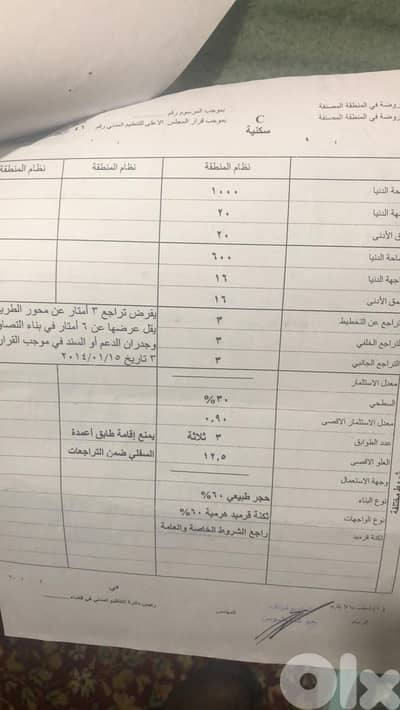 روضة في المنطقة المصنفة
C
بموجب المرسوم رقم
روضة في المنطقة المصنفة
سكنية
بموجب قرار المجلس الاعلى للتنظيم المدني رقم
نظام المنطقة نظام المنطقة نظام المنطقة
حة الدنيا ١٠٠٠
هة الدنيا ٢٠
ق الأدنى ٢٠
ساحة الدنيا ٦٠٠
اجهة الدنيا ١٦
مق الأدنى ١٦
تراجع عن التخطيط ٣ يفرض تراجع ٣ أمتار عن محور الطري
التراجع الخلفي ٣ يقل عرضها عن ٦ أمتار في بناء التصاو
التراجع الجانبي ٣ وجدران الدعم أو السند في موجب القرار
٣ تاريخ ٢٠١٤/٠١/١٥
معدل الاستثمار
السطحي ٣٠%
معدل الاستثمار الاقصى ٠,٩٠
عدد الطوابق ٣ ثلاثة يمنع إقامة طابق أعمدة
العلو الاقصى ١٢,٥ السفلي ضمن التراجعات
وجهة الاستعمال
نوع البناء حجر طبيعي ٦٠%
نوع الواجهات ثكنة قرميد هرمية ٦٠%
ثكنة قرميد راجع الشروط الخاصة والعامة
في
المهندس
رئيس دائرة التنظيم المدني في قضاء
olx